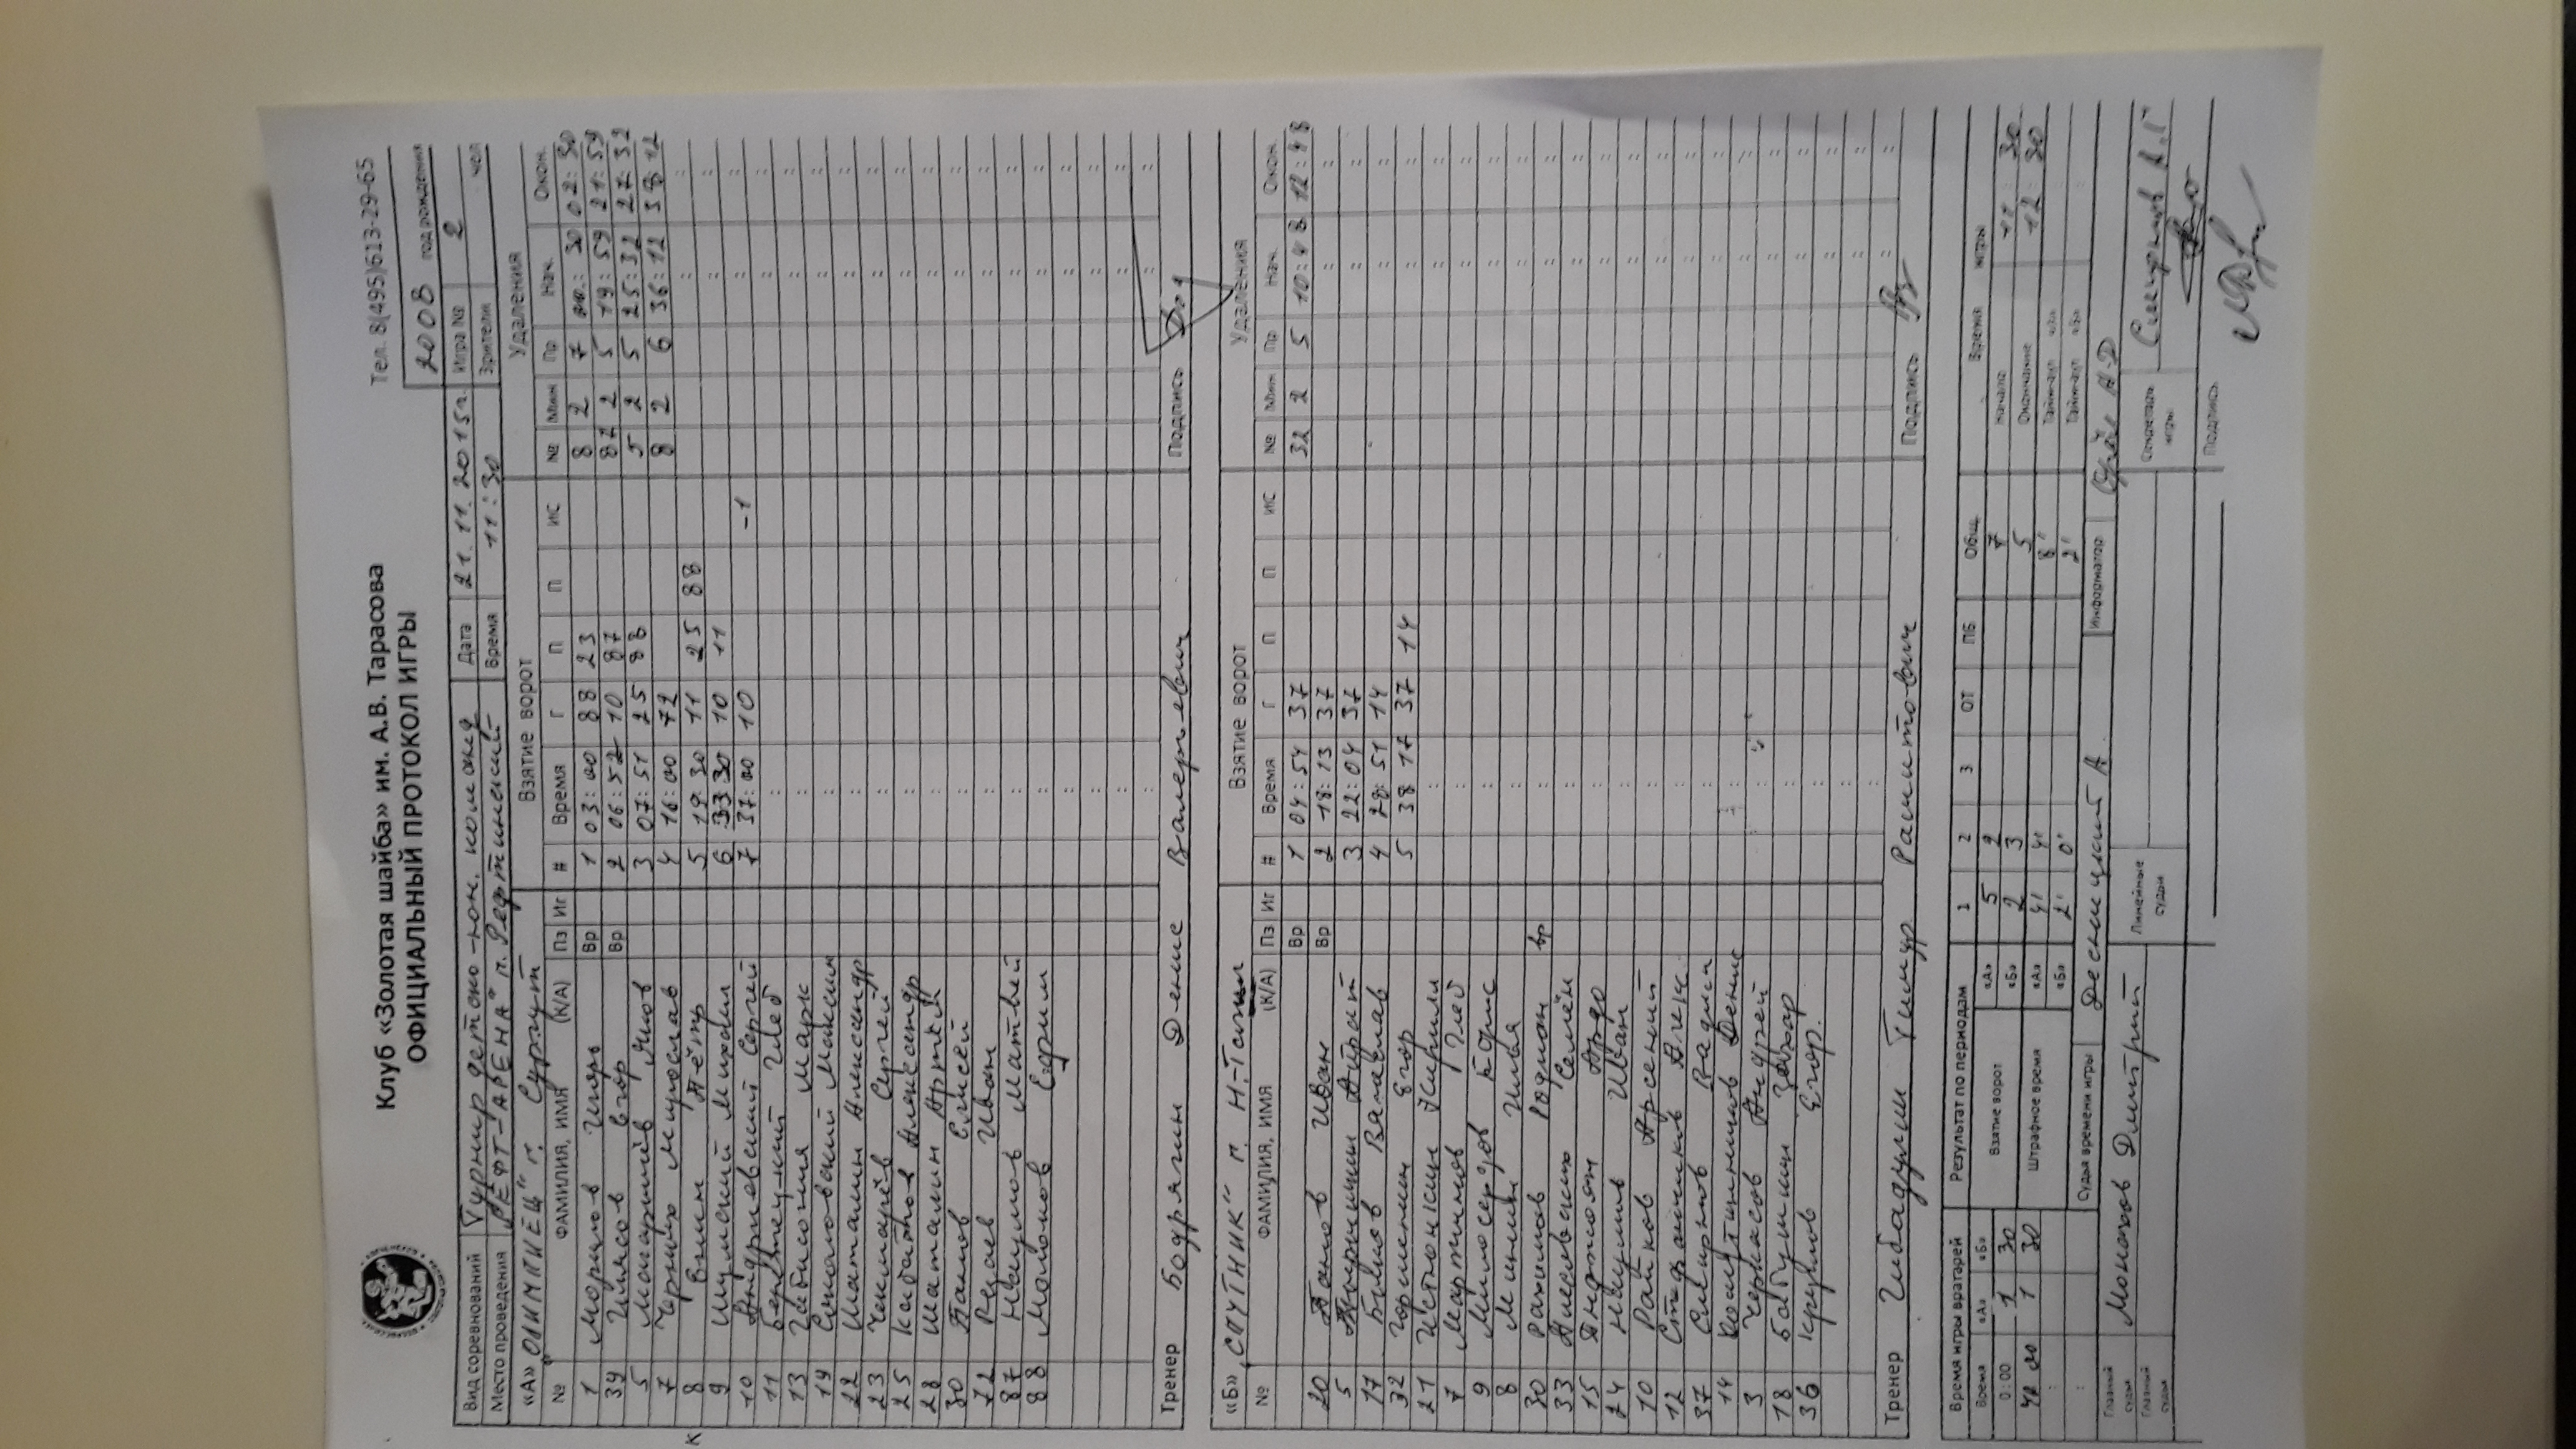 Клуб «Золотая шайба» им. А.В. Тарасова Тел. 8(495)613-29-65
ОФИЦИАЛЬНЫЙ ПРОТОКОЛ ИГРЫ 2008 год рождения
Вид соревнований Турнир детско-юн. команд Дата 21.11.2015г. Игра № 2
Место проведения "РЕФТ-АРЕНА" п. Рефтинский Время 11:30 Зрители чел
«А» "ОЛИМПИЕЦ" г. Сургут Взятие ворот Удаления
№ ФАМИЛИЯ, ИМЯ (К/А) Пз Иг # Время Г П П ИС № Мин Пр Нач. Окон.
1 Игорь Вр 1 03:00 88 23 8 2 7 00:30 02:30
39 Егор Вр 2 06:52 10 87 87 2 5 19:59 21:59
5 Яков 3 07:51 25 88 5 2 5 25:32 27:32
7 Черных Мирослав 4 16:00 72 8 2 6 36:12 38 12
К 8 Пётр 5 19:30 11 25 88
9 Шумский Михаил 6 33:30 10 11
10 Андриевский Сергей 7 37:00 10 -1
11 Глеб
13 Марк
19 Соколовский Максим
22 Шаталин Александр
23 Чекмарёв Сергей
25 Кабатов Александр
28 Шаталин Артём
30 Елисей
72 Иван
87 Наумов Матвей
88 Молоков
Тренер Бодрягин Денис Валерьевич Подпись
«Б» "СПУТНИК" г. Н-Тагил Взятие ворот Удаления
№ ФАМИЛИЯ, ИМЯ (К/А) Пз Иг # Время Г П П ИС № Мин Пр Нач. Окон.
Вр 1 04:54 37 32 2 5 10:48 12:48
20 Иван Вр 2 18:13 37
5 Айрат 3 22:04 37
17 Вячеслав 4 28:51 14
32 Горшенин Егор 5 38 17 37 14
21 Устюжанин Кирилл
7 Мартынов Глеб
9 Милосердов Борис
8 Минин Илья
30 Рахимов Родион вр
33 Семён
15
24 Наумов Иван
10 Райков Арсений
12 Алек.
37 Смирнов Вадим
14 Денис
3 Черкасов Андрей
18 Бабушкин Захар
36 Круглов Егор.
Тренер Гибадулин Тимур Раситович Подпись
Время игры вратарей Результат по периодам 1 2 3 ОТ ПБ Общ. Время игры
Время «А» «Б» Взятие ворот «А» 5 2 7 Начало 11:30
0:00 1 30 «Б» 2 3 5 Окончание 12:30
1 30 Штрафное время «А» 4' 4' 8' Тайм-аут «А»
«Б» 2' 0' 2' Тайм-аут «Б»
Судья времени игры А Информатор
Главный судья Монахов Дмитрий Линейные судьи Секретарь игры Смирнов А.Г
Главный судья Подпись